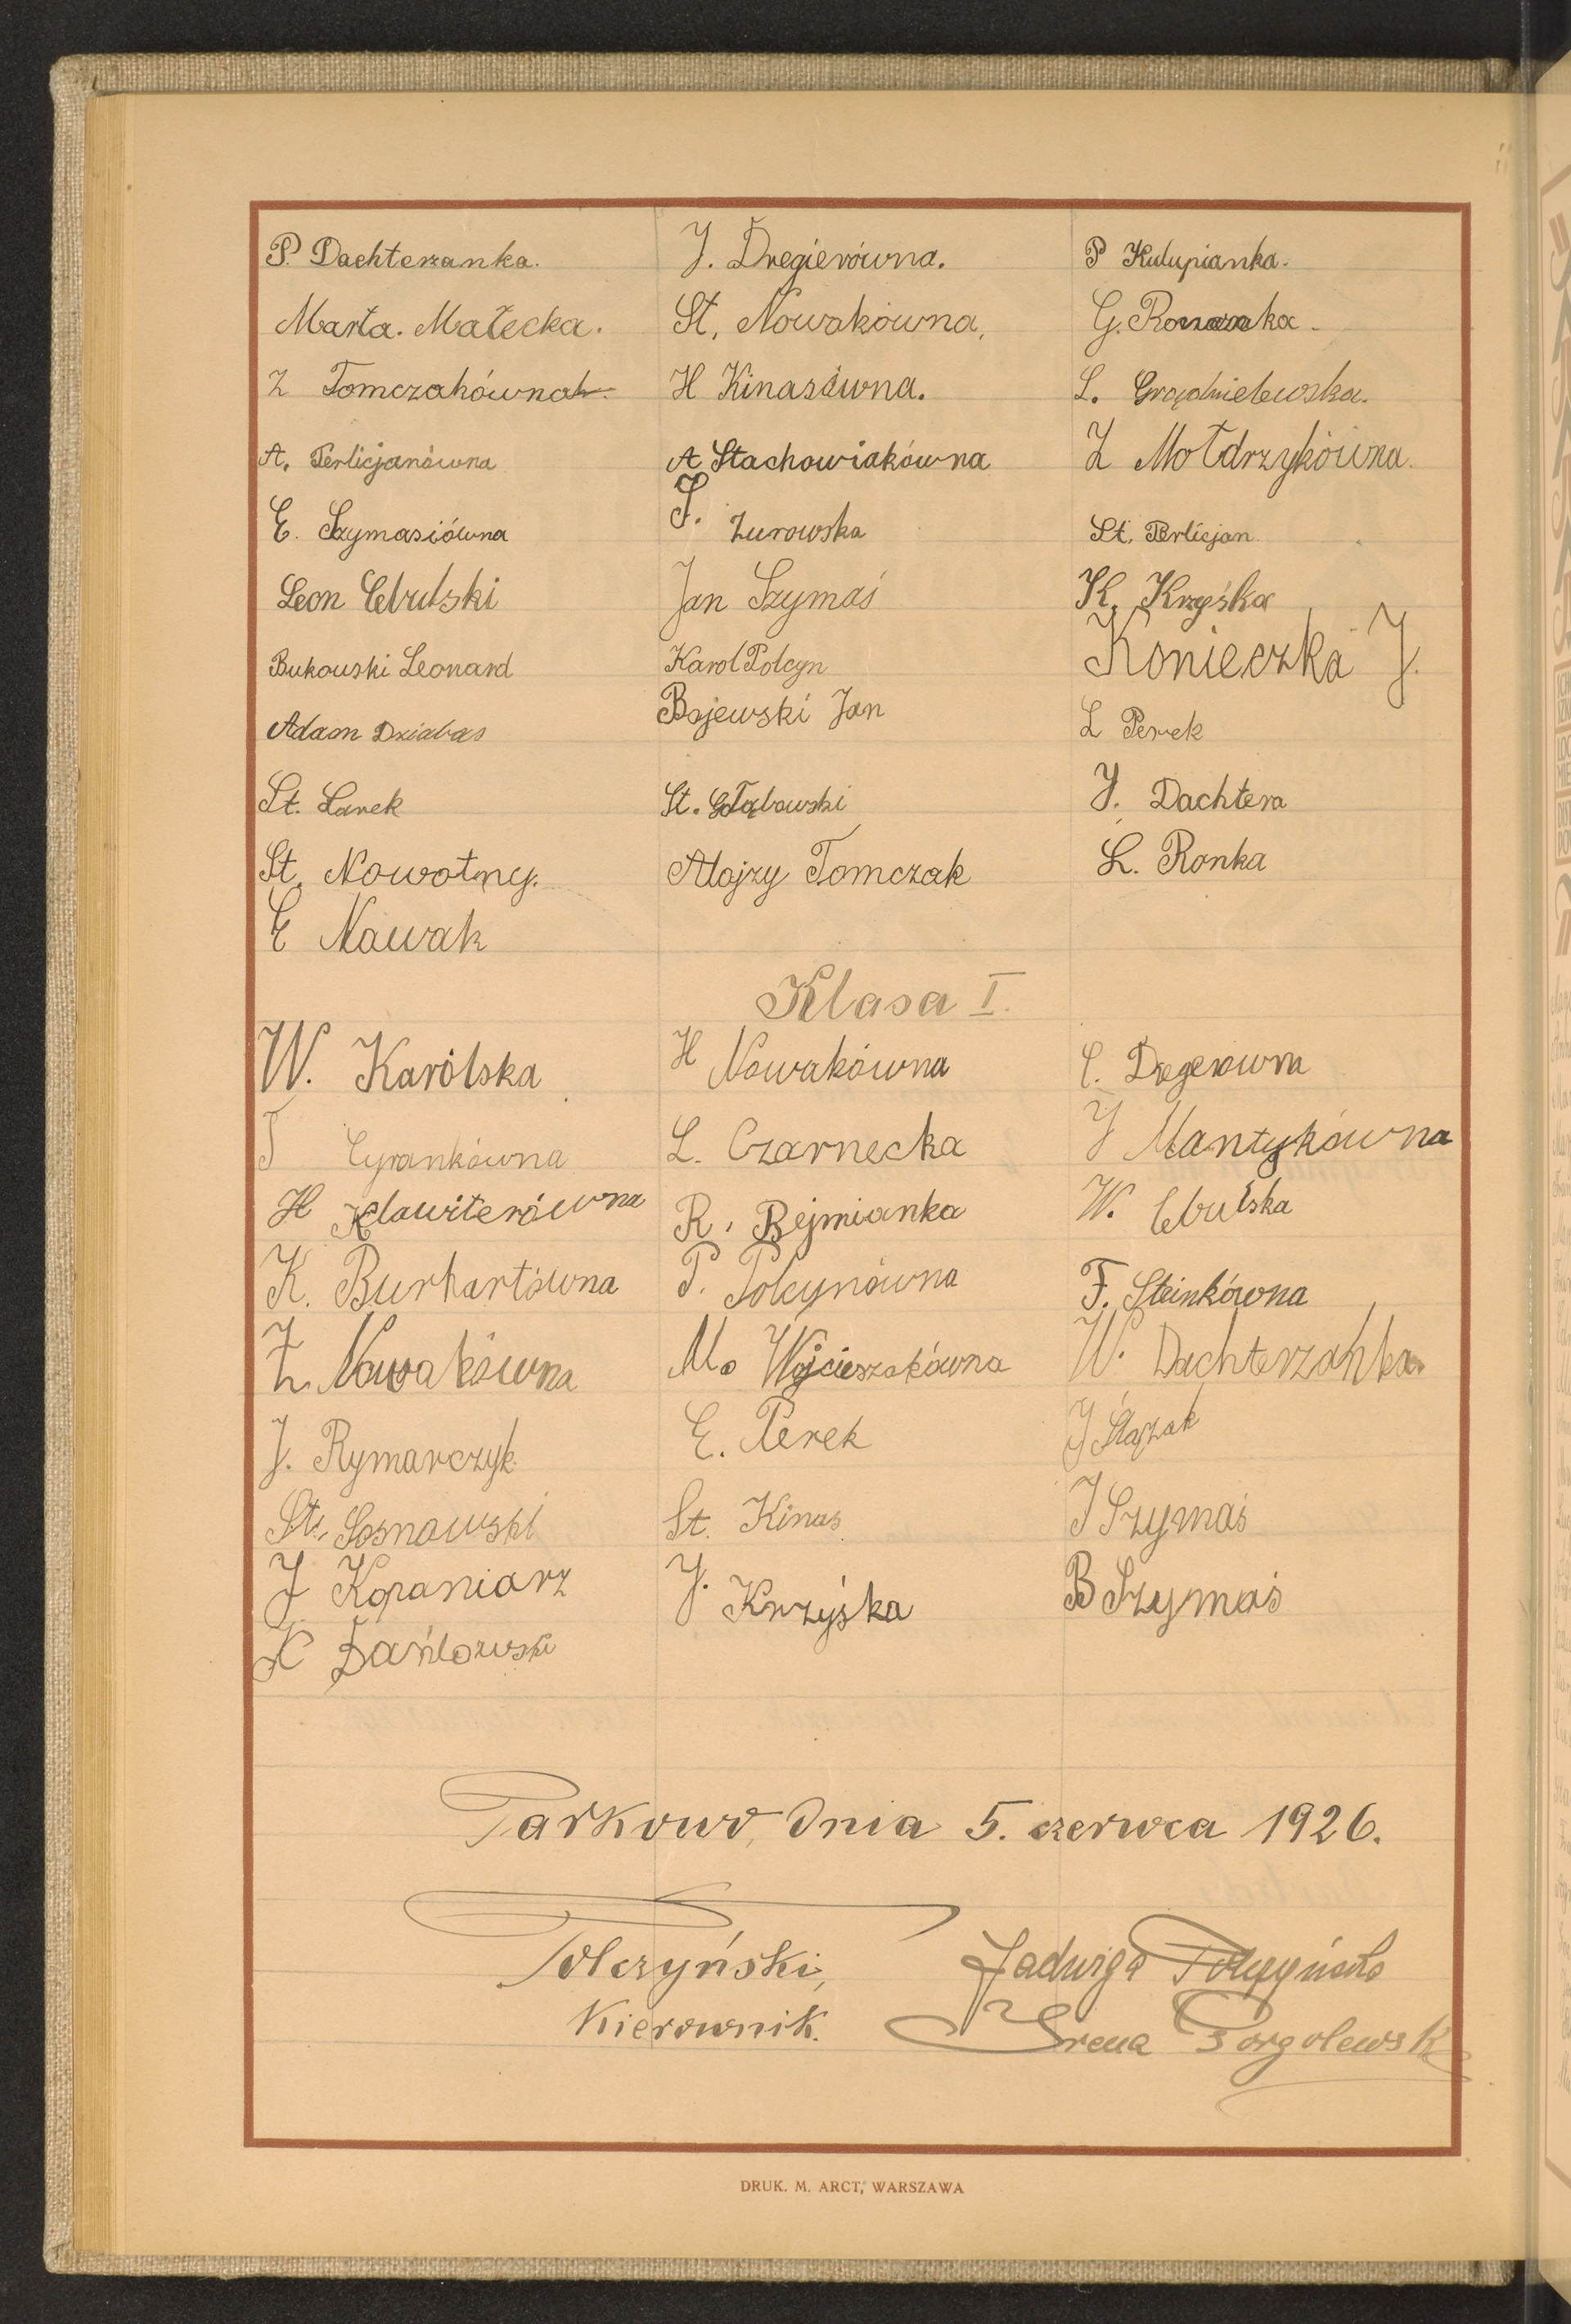 P. Dachterzanka. J. Dregierówna. P Kulupianka.
Marta. Małecka. St. Nowakówna. G. Ronka.
Z Tomczakówna H Kinasówna. L. Grądzielewska.
A. Perlicjanówna A Stachowiakówna Z Mołdrzykówna.
E. Szymasiówna J. Żurowska St. Perlicjan.
Leon Cebulski Jan Szymaś K. Krzyśka
Bukowski Leonard Karol Polcyn Konieczka J.
Adam Dziabas Bojewski Jan L Perek
St. Larek St. Gołąbowski J. Dachtera
St. Nowotny. Alojzy Tomczak L. Ronka
E Nowak
Klasa I.
W. Karólska H Nowakówna C. Dregerówna
T Cyrankówna L. Czarnecka J Mantykówna
H Klawiterówna R. Bejmianka W. Cebulska
K. Burhartówna P. Polcynówna F. Steinkówna
Z Nowakówna M. Wojcieszakówna W. Dachterzanka
J. Rymarczyk E. Perek J Ślażak
St. Sosnowski St. Kinas J Szymaś
J Kopaniarz J. Krzyśka B Szymaś
K
Parkowo, dnia 5. czerwca 1926.
Polczyński, Jadwiga Polczyńska
Kierownik. Irena Gorgolewska
DRUK. M. ARCT, WARSZAWA